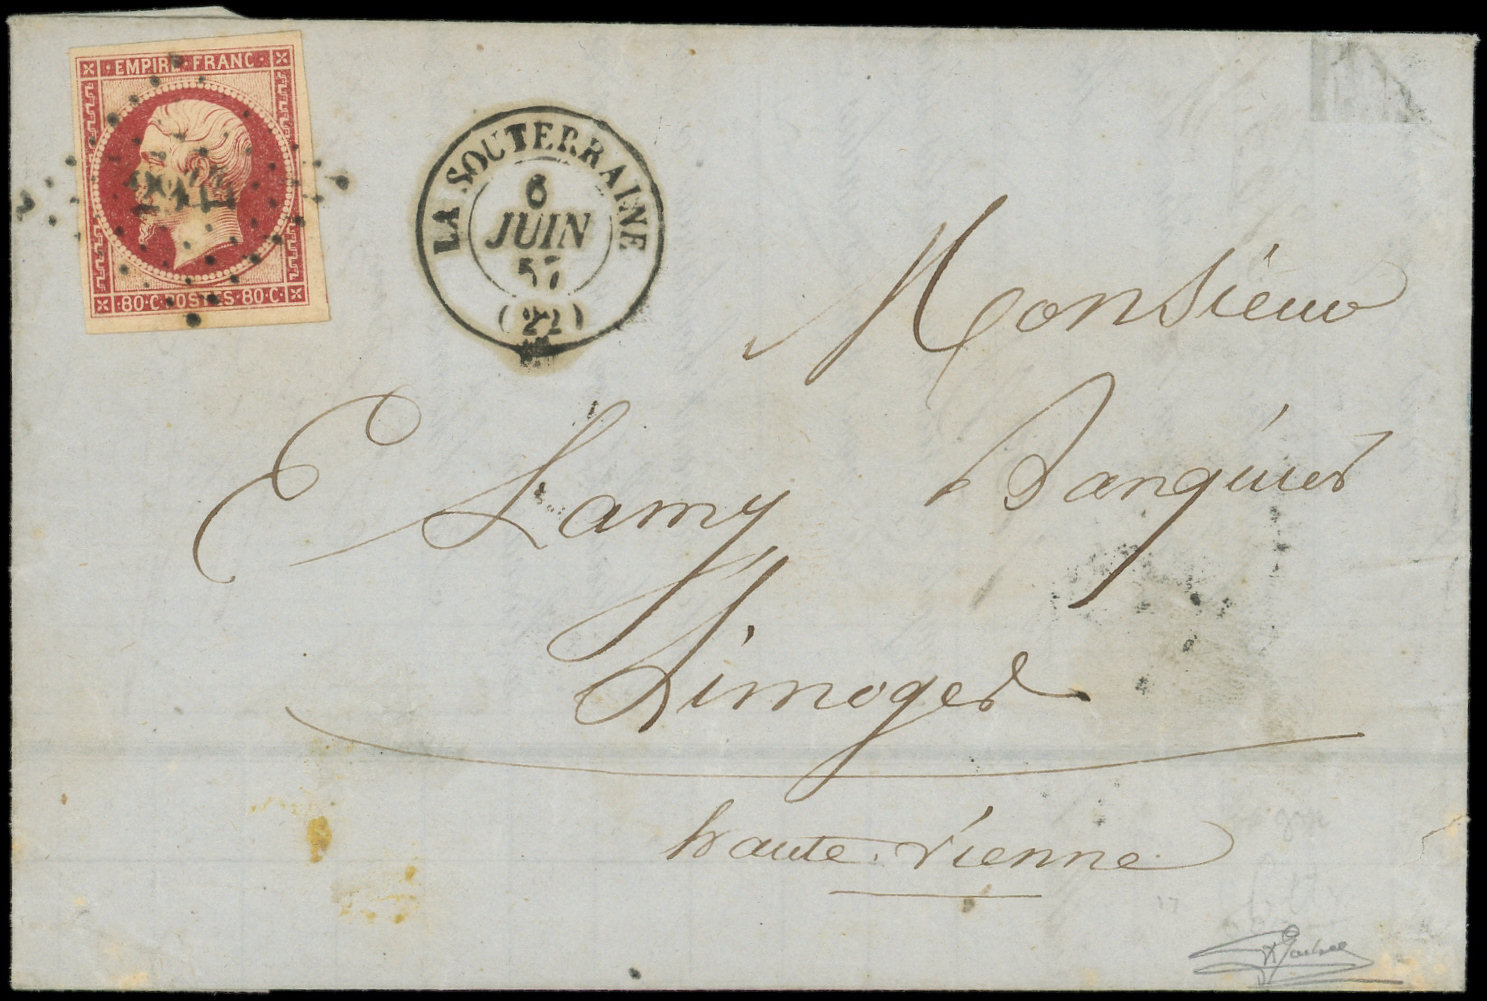 EMPIRE · FRANC ·
· 80 · C · POSTES · 80 · C ·
LA SOUTERRAINE
6
JUIN
57
(22)
Monsieur
E Lamy Banquier
Limoges
haute-Vienne